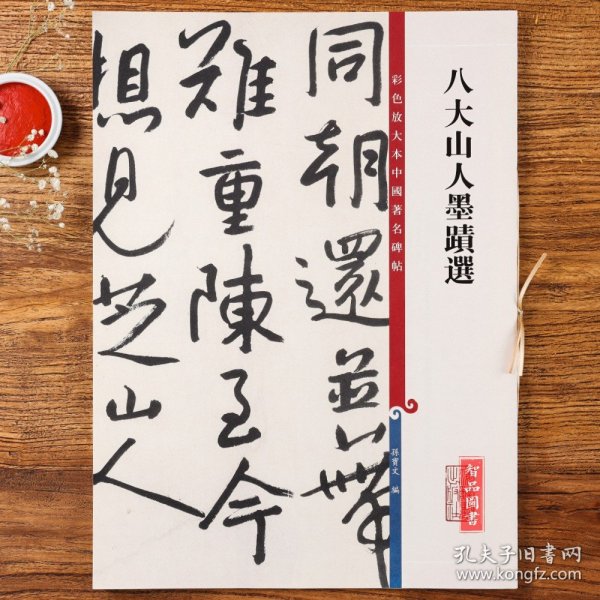 八大山人墨蹟選
彩色放大本中國著名碑帖
孫寶文 編
同朝還並蒂
難重陳至今
想見芝山人
智品圖書
孔夫子旧书网
www.kongfz.com